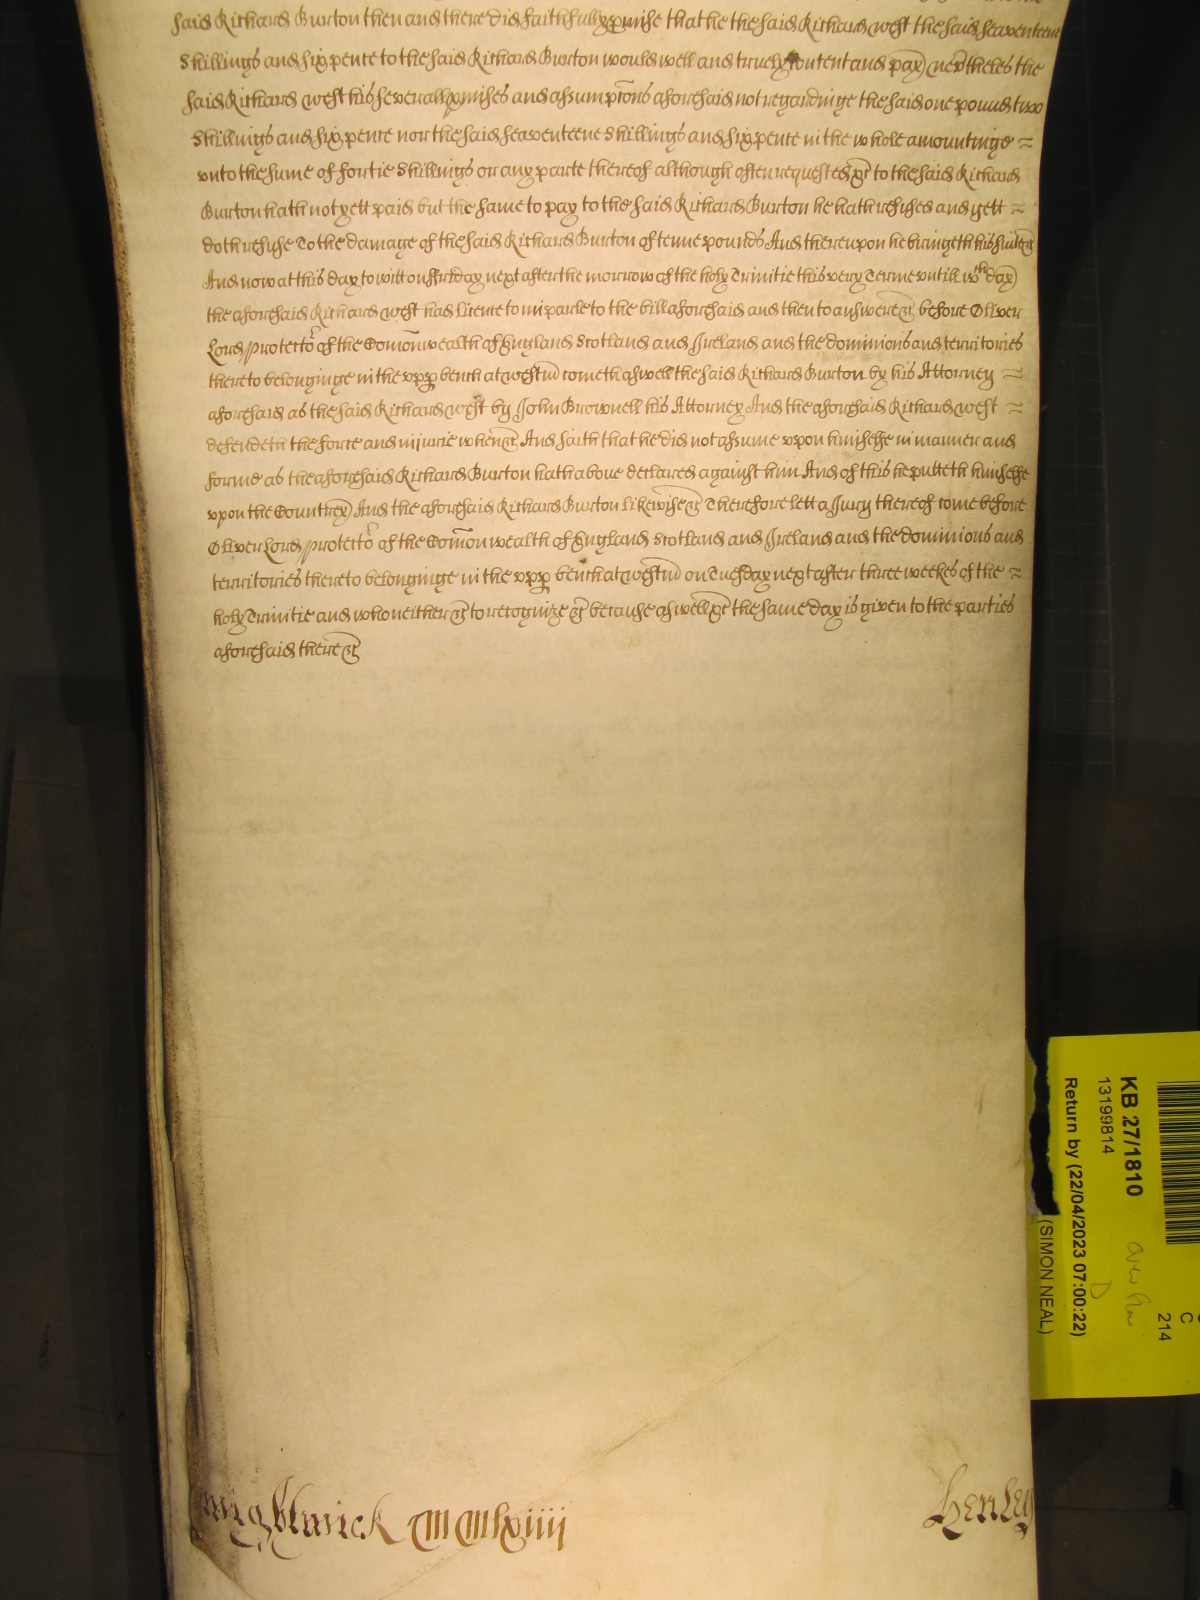 said Richard Burton then and there did faithfully pmise that he the said Richard West the said seaventeene
shillings and six pence to the said Richard Burton would well and truely content and pay) nevtheles the
said Richard West his severall pmises and assumpcons aforesaid not regardinge the said one pound two
shillings and six pence nor the said seaventeene shillings and six pence in the whole amountinge =
vnto the sume of fortie shillings or any parte thereof although often requested &c to the said Richard
Burton hath not yett paid but the same to pay to the said Richard Burton he hath refused and yett =
doth refuse To the damage of the said Richard Burton of tenne pounds And thereupon he bringeth his suite &c
And now at this day to witt on ffriday next after the morrow of the holy Trinitie this very Terme vntill wch day)
the aforesaid Richard West had licence to imparle to the bill aforesaid and then to answere &c before Oliver
Lord Protector of the Comonwealth of England Scotland and Ireland and the dominions and territories
thereto belonginge in the vpp bench at Westm cometh aswell the said Richard Burton by his Attorney =
aforesaid as the said Richard West by John Brownell his Attorney And the aforesaid Richard West =
defendeth the force and iniurie when &c And saith that he did not assume vpon himselfe in manner and
forme as the aforesaid Richard Burton hath aboue declared against him And of this he putteth himselfe
vpon the Countrey) And the aforesaid Richard Burton likewise &c Therefore lett a Jury thereof come before
Oliver Lord Protector of the Comonwealth of England Scotland and Ireland and the dominions and
territories thereto belonginge in the vpp bench at Westm on Tuesday next after three weekes of the =
holy Trinitie and who neither &c to recognize &c because aswell &c the same day is given to the parties
aforesaid there &c
Henley
KB 27/1810
13199814
Return by (22/04/2023 07:00:22)
(SIMON NEAL)
D
C
214